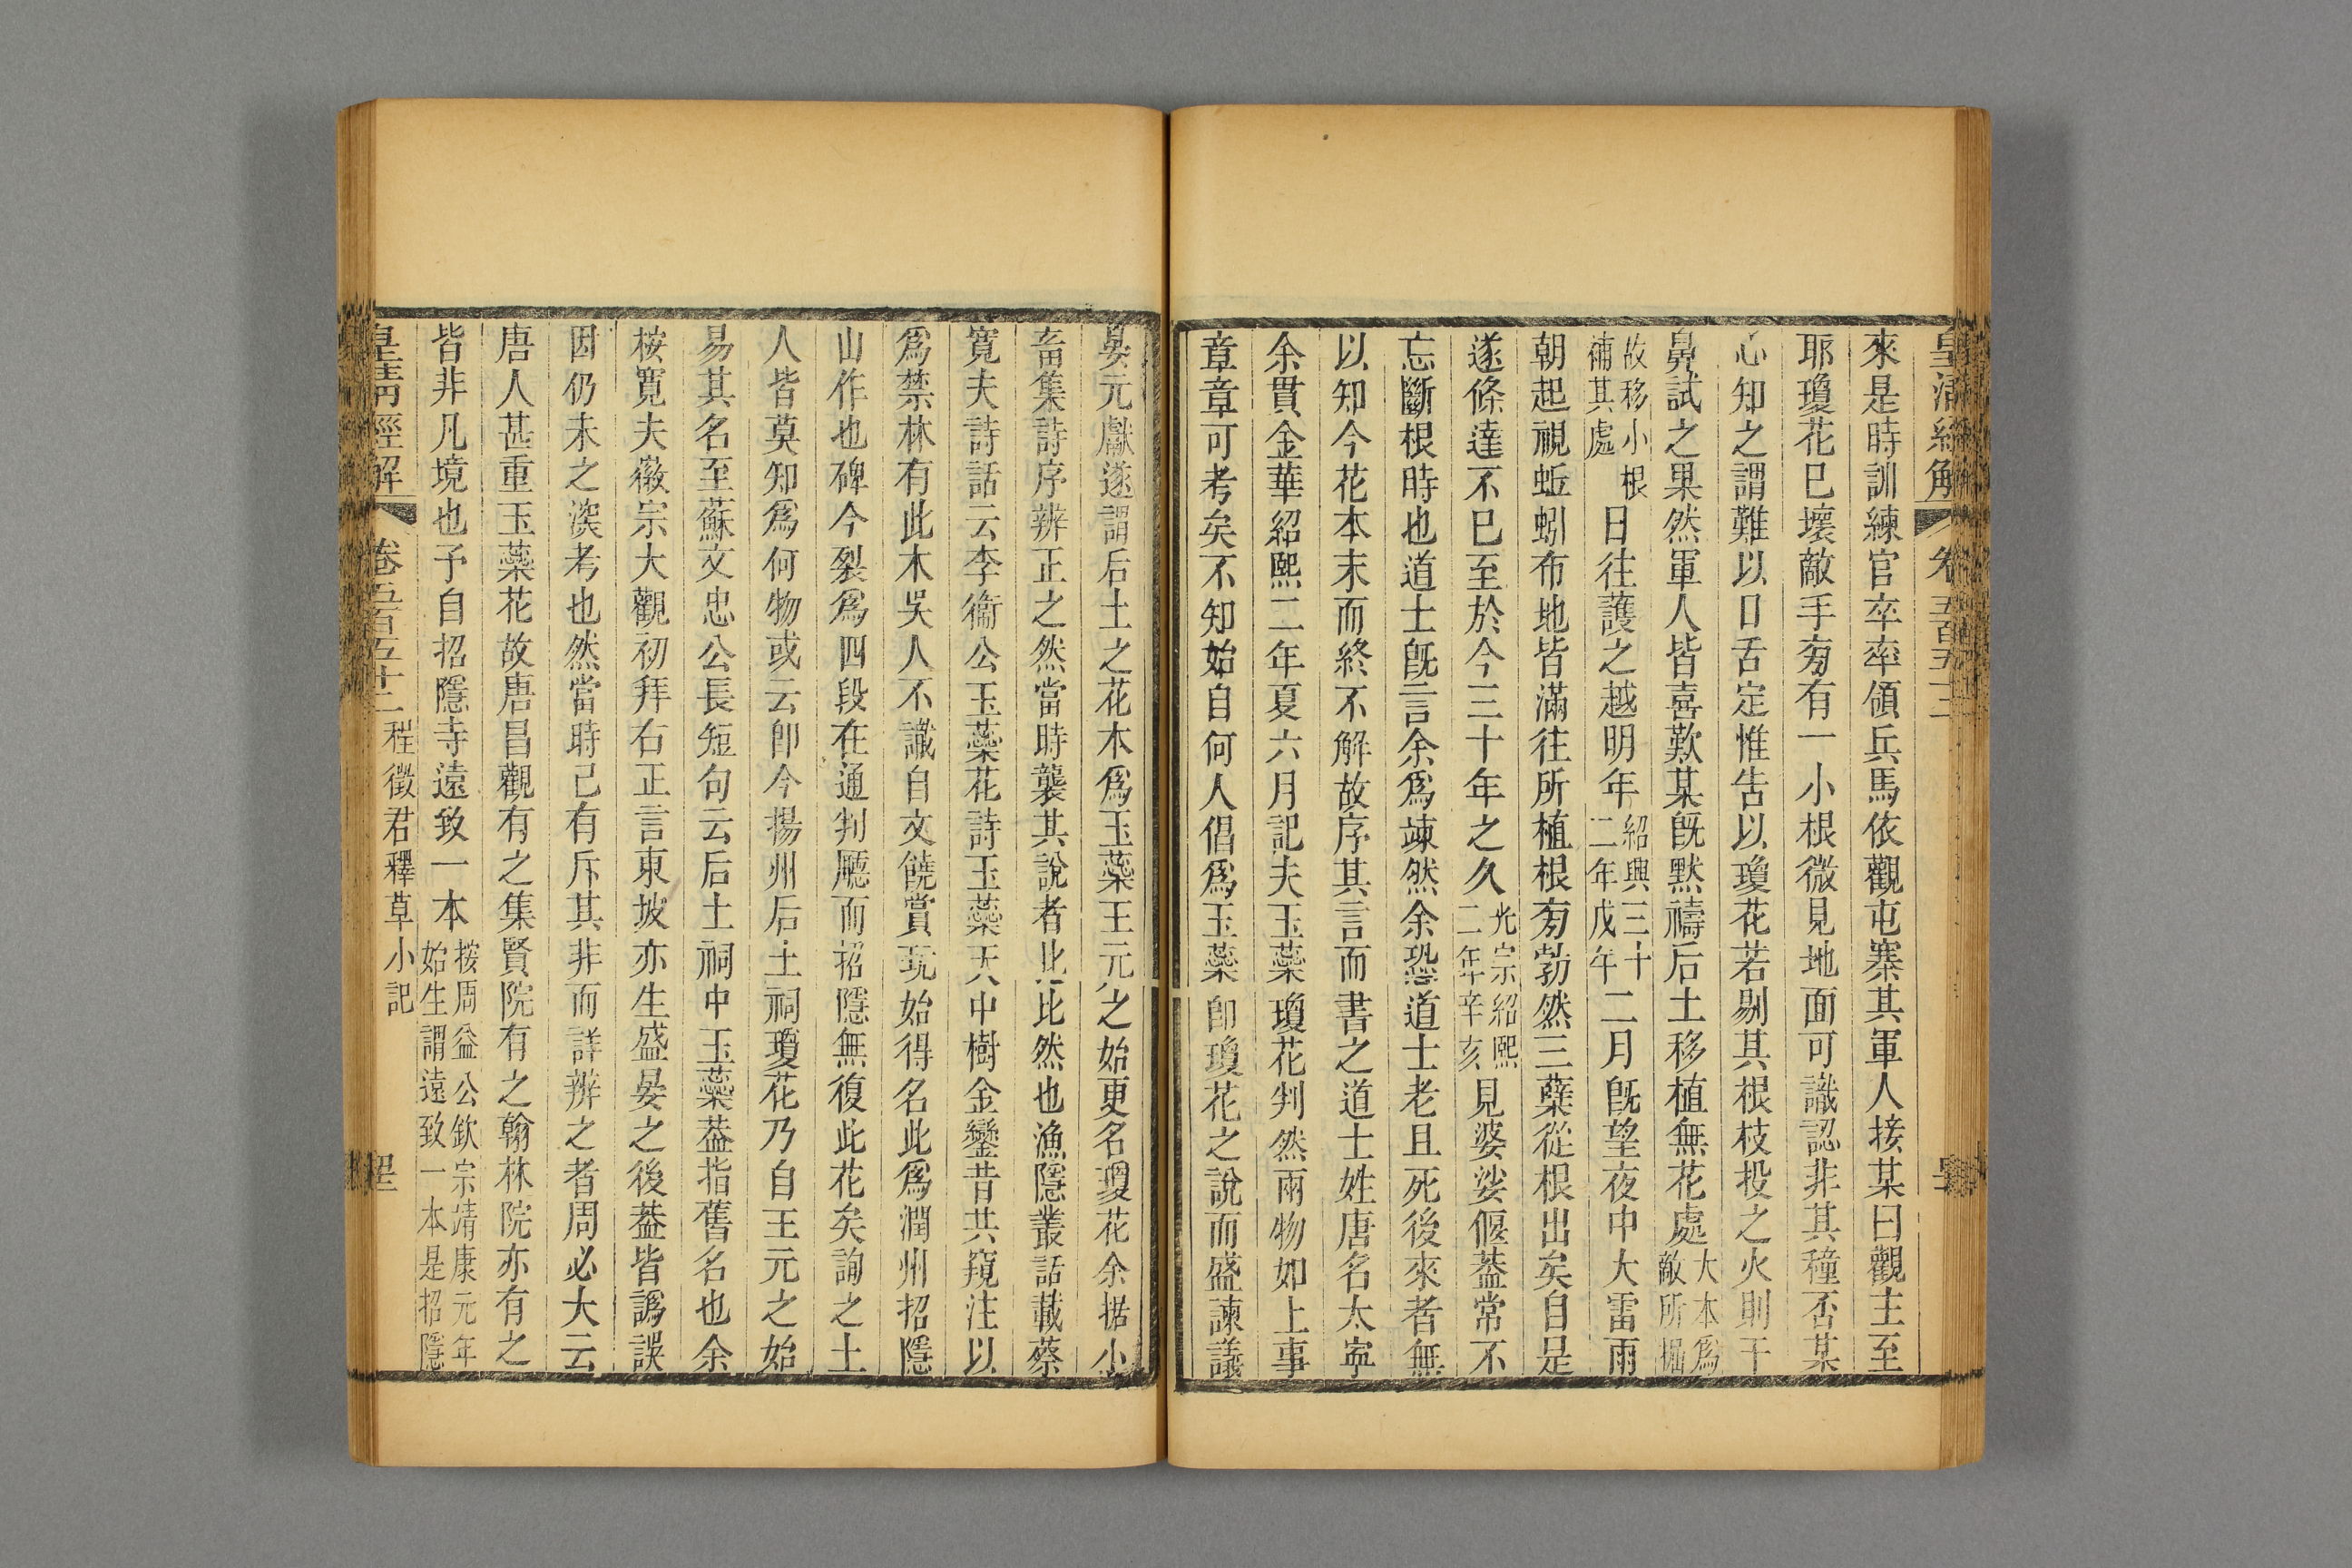 皇清經解 卷五百五十二
來是時訓練官卒率領兵馬依觀屯寨其軍人接某曰觀主至
耶瓊花已壞敵手旁有一小根微見地面可識認非其種否某
心知之謂難以口舌定惟告以瓊花若剔其根枝投之火則干
鼻試之果然軍人皆喜歎某旣默禱后土移植無花處大本爲敵所掘
故移小根補其處日往護之越明年紹興三十二年戊午二月旣望夜中大雷雨
朝起視蚯蚓布地皆滿往所植根旁勃然三蘖從根出矣自是
遂條達不已至於今三十年之久光宗紹熙二年辛亥見婆娑偃葢常不
忘斷根時也道士旣言余爲竦然余恐道士老且死後來者無
以知今花本末而終不解故序其言而書之道士姓唐名太寍
余貫金華紹熙二年夏六月記夫玉蘂瓊花判然兩物如上事
章章可考矣不知始自何人倡爲玉蘂卽瓊花之說而盛諫議
晏元獻遂謂后土之花木爲玉蘂王元之始更名瓊花余据小
畜集詩序辨正之然當時襲其說者比比然也漁隱叢話載蔡
寬夫詩話云李衞公玉蘂花詩玉蘂天中樹金鑾昔共窺注以
爲禁林有此木吳人不識自文饒賞玩始得名此爲潤州招隱
山作也碑今裂爲四段在通判廳而招隱無復此花矣詢之土
人皆莫知爲何物或云卽今揚州后土祠瓊花乃自王元之始
易其名至蘇文忠公長短句云后土祠中玉蘂葢指舊名也余
按寬夫徽宗大觀初拜右正言東坡亦生盛晏之後葢皆譌誤
因仍未之深考也然當時已有斥其非而詳辨之者周必大云
唐人甚重玉蘂花故唐昌觀有之集賢院有之翰林院亦有之
皆非凡境也予自招隱寺遠致一本按周益公欽宗靖康元年始生謂遠致一本是招隱
皇淸經解 卷五百五十二 程徵君釋草小記